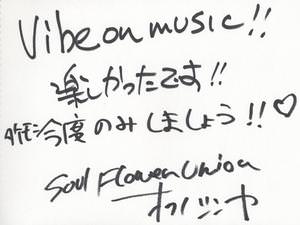 Vibe on music!!
楽しかったです!!
今度のみしましょう!!♡
Soul Flower Union